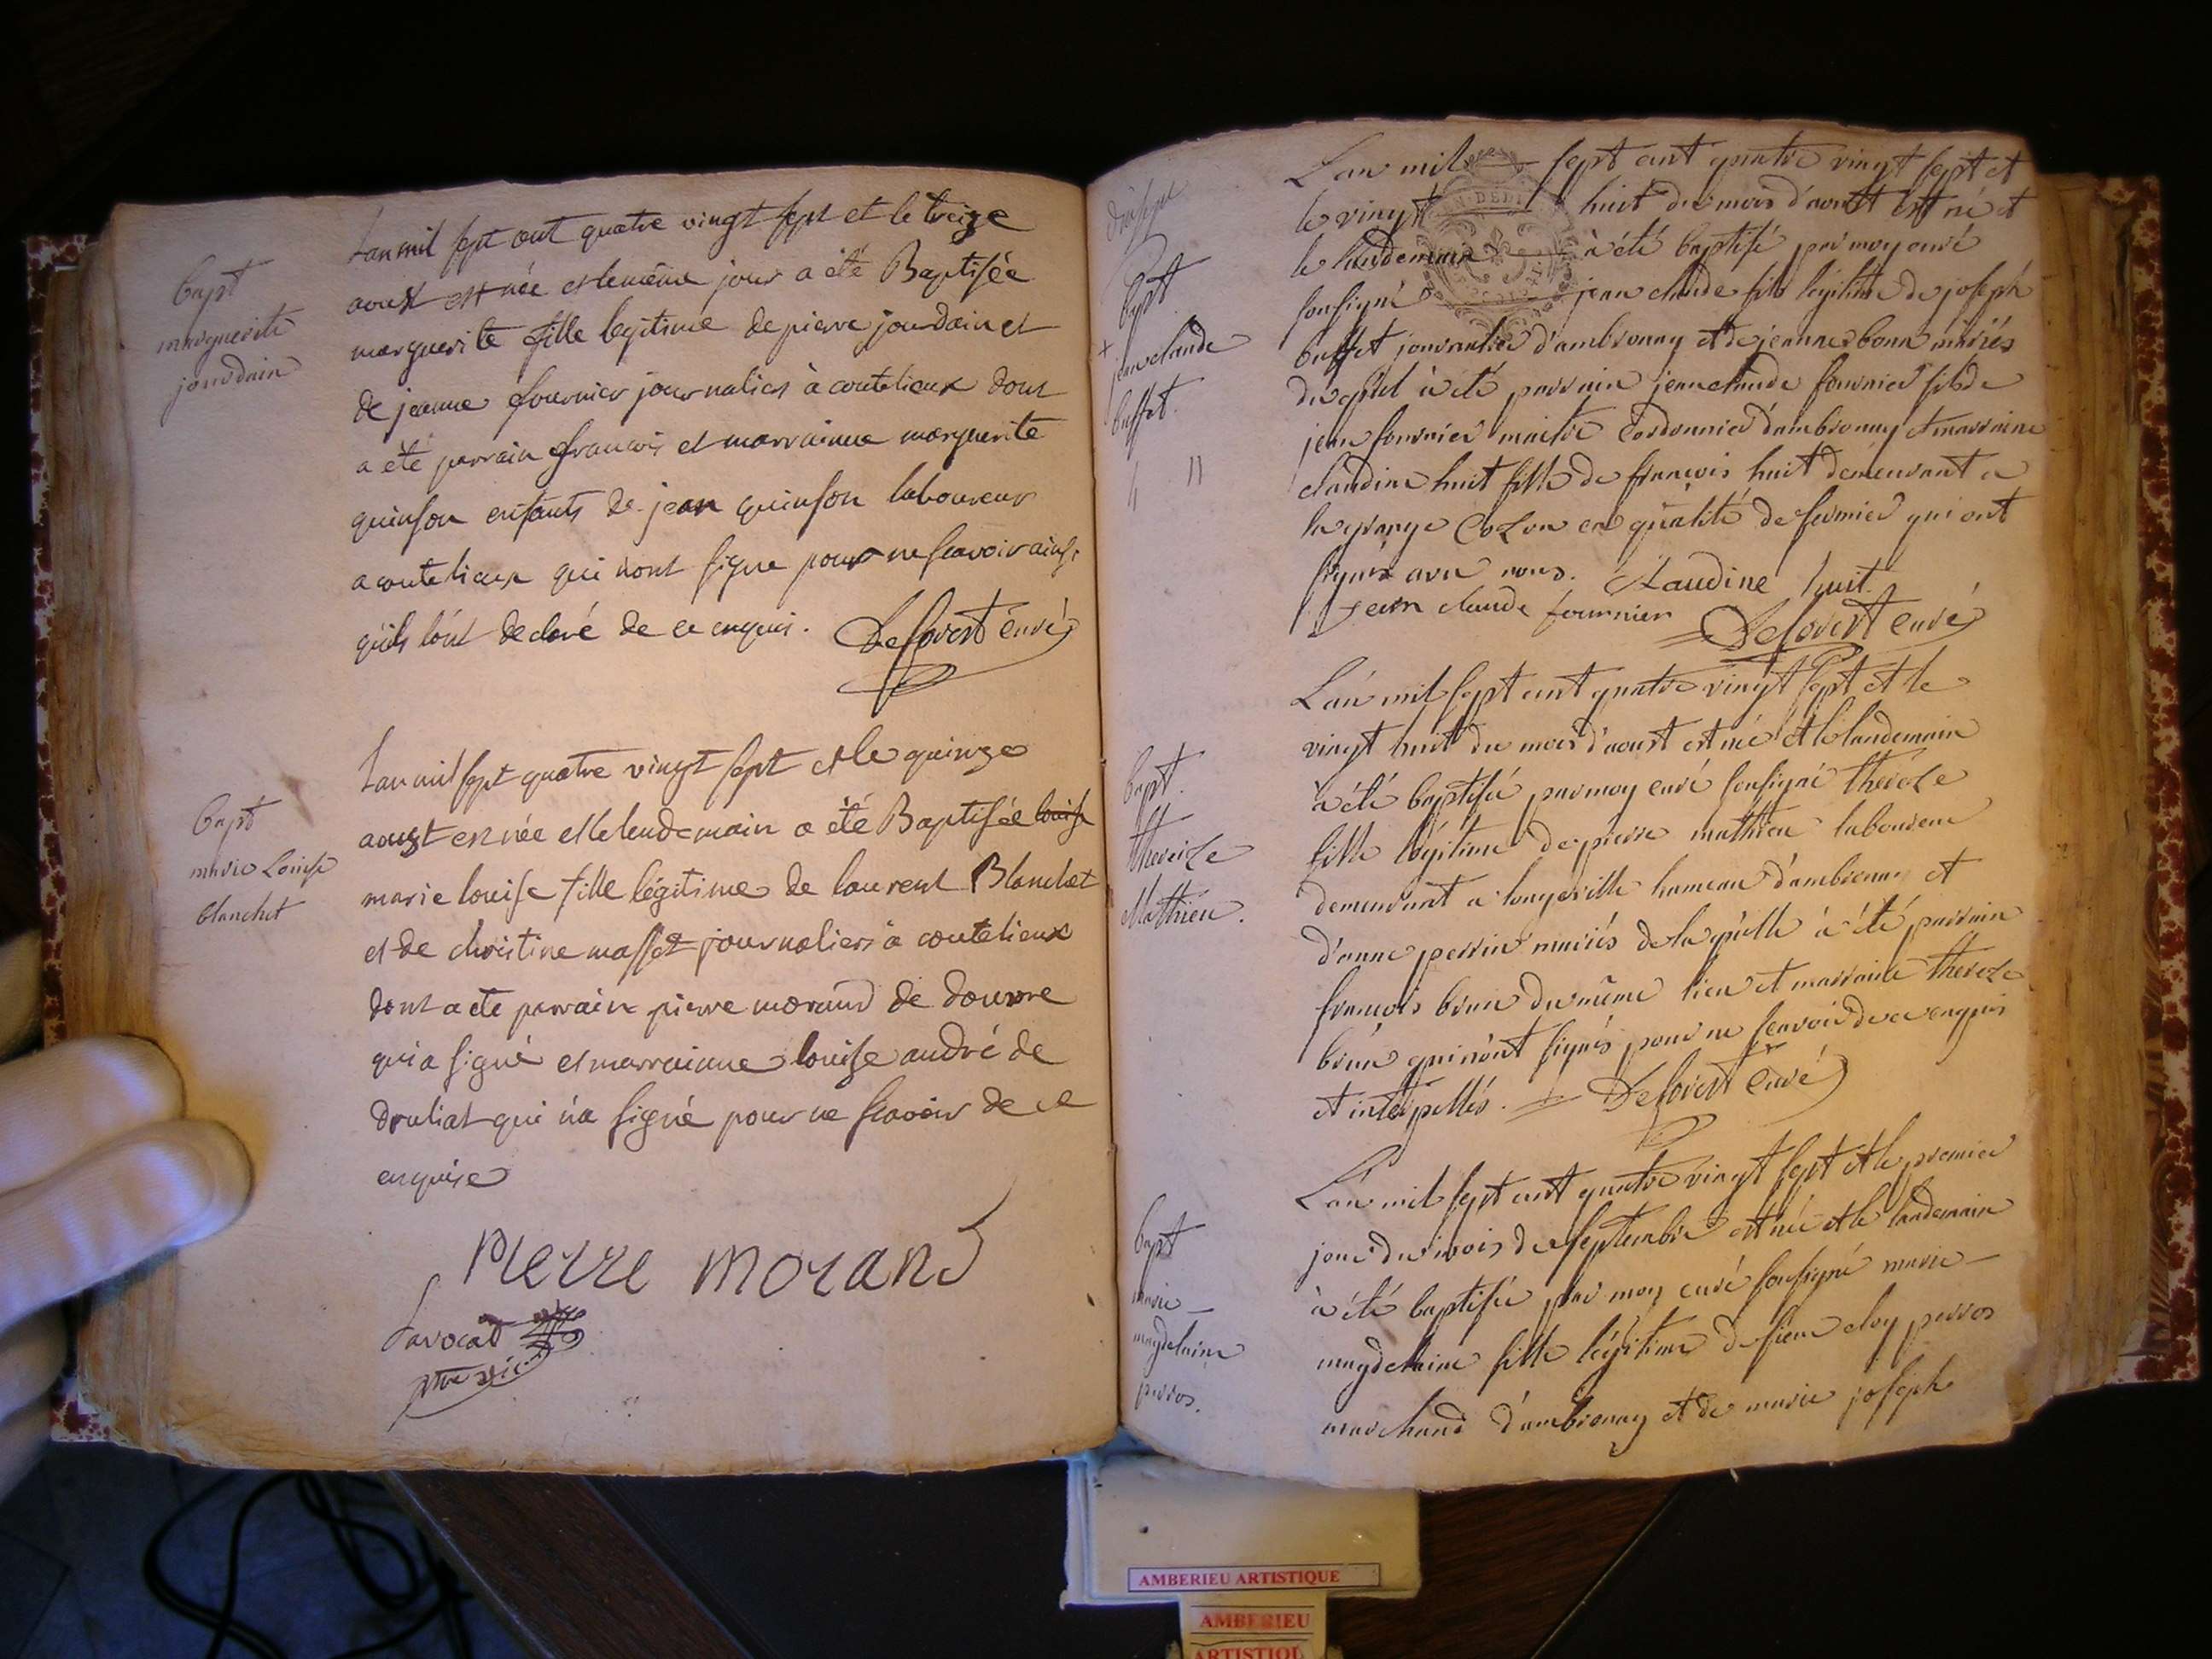 bapt
marguerite
jourdain
Lan mil sept cent quatre vingt sept et le treize
aoust est née et le même jour a été Baptisée
marguerite fille legitime de pierre jourdain et
de jeanne fournier journaliers à coutelieux dont
a été parrain francois et marrainne marguerite
quinson enfants de jean quinson laboureur
a coutelieux qui nont signe pour ne scavoir ainsi
quils lont declaré de ce enquis. Deforest curé
bapt
marie Louise
blanchet
Lan mil sept quatre vingt sept et le quinze
aoust est née et le lendemain a été Baptisée louise
marie louise fille légitime de laurent Blanchet
et de christine masset journaliers a coutelieux
dont a ete parrain pierre morand de douvre
qui a signé et marrainne louise andré de
druliat qui n'a signé pour ne scavoir de ce
enquise
Pierre morand
Savocat
ptre vic
bapt.
jean claude
buffet.
Lan mil sept cent quatre vingt sept et
le vingt huit du mois d'aoust est né et
le landemain à été baptisé par moy curé
sousigné jean claude fils légitime de joseph
buffet journalier d'ambronay et de jeanne bonn mariés
duquel à été parrain jean claude fournier fils de
jean fournier maitre Cordonnier d'ambronay et marraine
claudine huit fille de françois huit demeurant a
la grange Cozon en qualité de fermier qui ont
signés avec nous. Claudine huit.
jean claude fournier Deforest curé
bapt.
thereize
Mathieu.
L'an mil sept cent quatre vingt sept et le
vingt huit du mois d'aoust est née et le landemain
à été baptisée par moy curé sousigné thereze
fille légitime de pierre mathieu laboureur
demeurant a longeville hameau d'ambronay et
d'anne perrin mariés de laquelle à été parrain
françois brun du même lieu et marraine thereze
brun qui n'ont signés pour ne scavoir de ce enquis
et interpellés. Deforest Curé
bapt
marie
magdelaine
perros.
L'an mil sept cent quatre vingt sept et le premier
jour du mois de septembre est née et le landemain
à été baptisée par moy curé sousigné marie
magdelaine fille légitime de sieur eloy perros
marchand d'ambronay et de marie joseph
AMBERIEU ARTISTIQUE
AMBERIEU